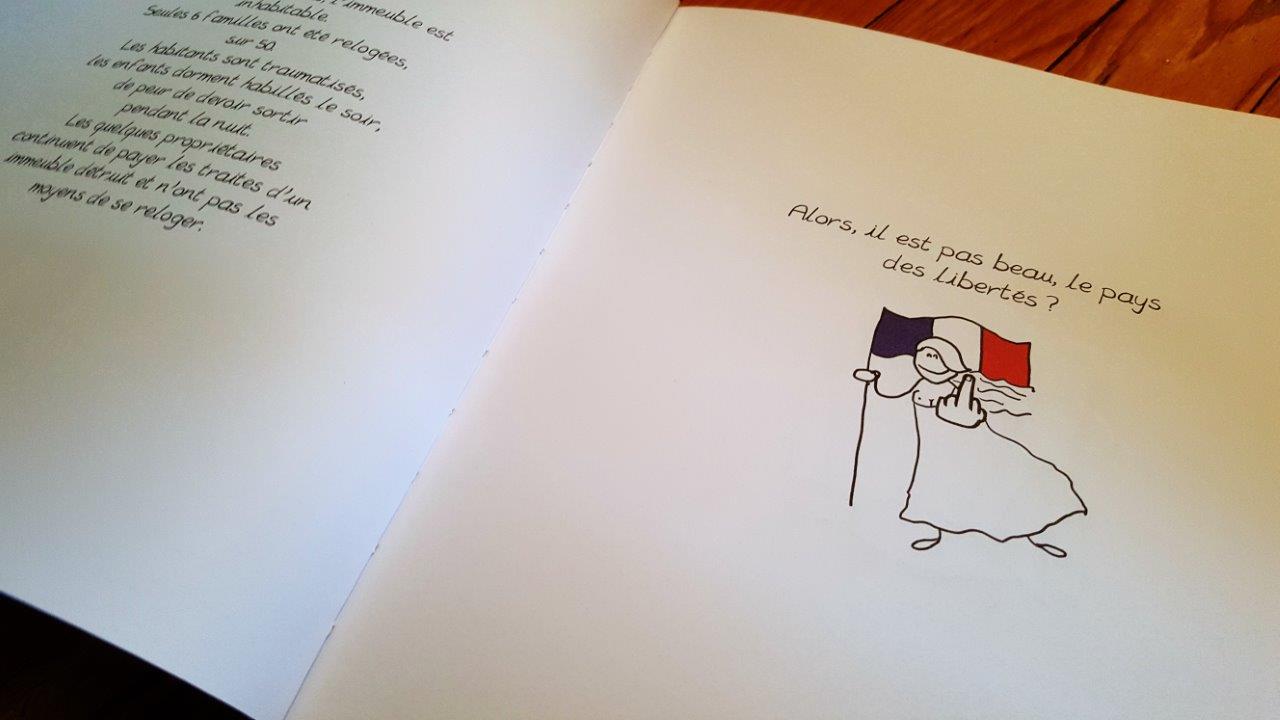 l'immeuble est
inhabitable.
Seules 6 familles ont été relogées,
sur 50.
Les habitants sont traumatisés,
les enfants dorment habillés le soir,
de peur de devoir sortir
pendant la nuit.
Les quelques propriétaires
continuent de payer les traites d'un
immeuble détruit et n'ont pas les
moyens de se reloger.
Alors, il est pas beau, le pays
des libertés ?